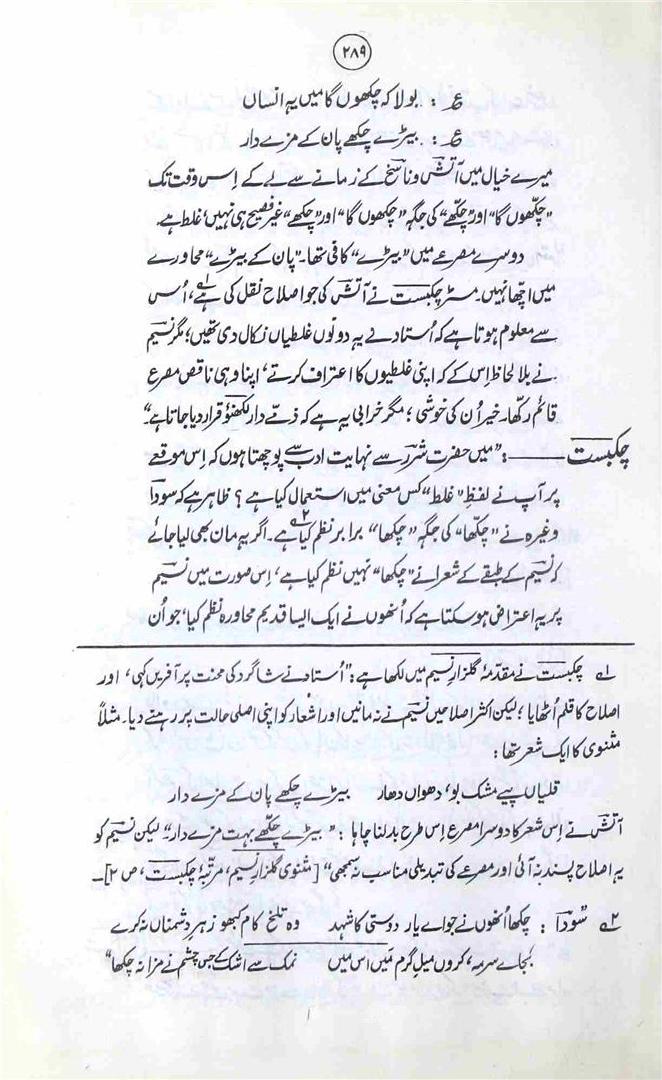 ۲۸۹
ع : بولا کہ چکھوں گا میں یہ انساں
ع : بیڑے چکھے پان کے مزے دار
میرے خیال میں آتش و ناسخ کے زمانے سے لے کے اِس وقت تک
"چکّھوں گا" اور "چکّھے" کی جگہ "چکھوں گا" اور "چکھے" غیر فصیح ہی نہیں، غلط ہے۔
دوسرے مصرعے میں "بیڑے" کافی تھا۔ "پان کے بیڑے" محاورے
میں اچھا نہیں۔ مسٹر چکبست نے آتش کی جو اصلاح نقل کی ہے۱؎، اُس
سے معلوم ہوتا ہے کہ اُستاد نے یہ دونوں غلطیاں نکال دی تھیں؛ مگر نسیم
نے بلا لحاظ اِس کے کہ اپنی غلطیوں کا اعتراف کرتے، اپنا وہی ناقص مصرع
قائم رکھا۔ خیر اُن کی خوشی؛ مگر خرابی یہ ہے کہ ذمّے دار لکھنؤ قرار دیا جاتا ہے۔"
چکبست ——— : "میں حضرت شرر سے نہایت ادب سے پوچھتا ہوں کہ اِس موقعے
پر آپ نے لفظِ "غلط" کس معنی میں استعمال کیا ہے؟ ظاہر ہے کہ سودا
وغیرہ نے "چکّھا" کی جگہ "چکھا" برابر نظم کیا ہے۲؎۔ اگر یہ مان بھی لیا جائے
کہ نسیم کے طبقے کے شعرا نے "چکھا" نہیں نظم کیا ہے، اِس صورت میں نسیم
پر یہ اعتراض ہو سکتا ہے کہ اُنھوں نے ایک ایسا قدیم محاورہ نظم کیا، جو اُن
۱؎ چکبست نے مقدمۂ گلزارِ نسیم میں لکھا ہے: "اُستاد نے شاگرد کی محنت پر آفریں کہی، اور
اصلاح کا قلم اُٹھایا؛ لیکن اکثر اصلاحیں نسیم نے نہ مانیں اور اشعار کو اپنی اصلی حالت پر رہنے دیا۔ مثلاً
مثنوی کا ایک شعر تھا:
قلیاں پیے مشک بو، دھواں دھار بیڑے چکھے پان کے مزے دار
آتش نے اِس شعر کا دوسرا مصرع اِس طرح بدلنا چاہا: "بیڑے چکّھے بہت مزے دار" لیکن نسیم کو
یہ اصلاح پسند نہ آئی اور مصرعے کی تبدیلی مناسب نہ سمجھی" [مثنوی گلزارِ نسیم، مرتبۂ چکبست، ص ۲]۔
۲؎ سودا : چکھا اُنھوں نے جو اے یار دوستی کا شہد وہ تلخ کام کبھو زہرِ دشمناں نہ کرے
بجاے سرمہ، کروں میلِ گرم مَیں اس میں نمک سے اشک کے جس چشم نے مزا نہ چکھا"